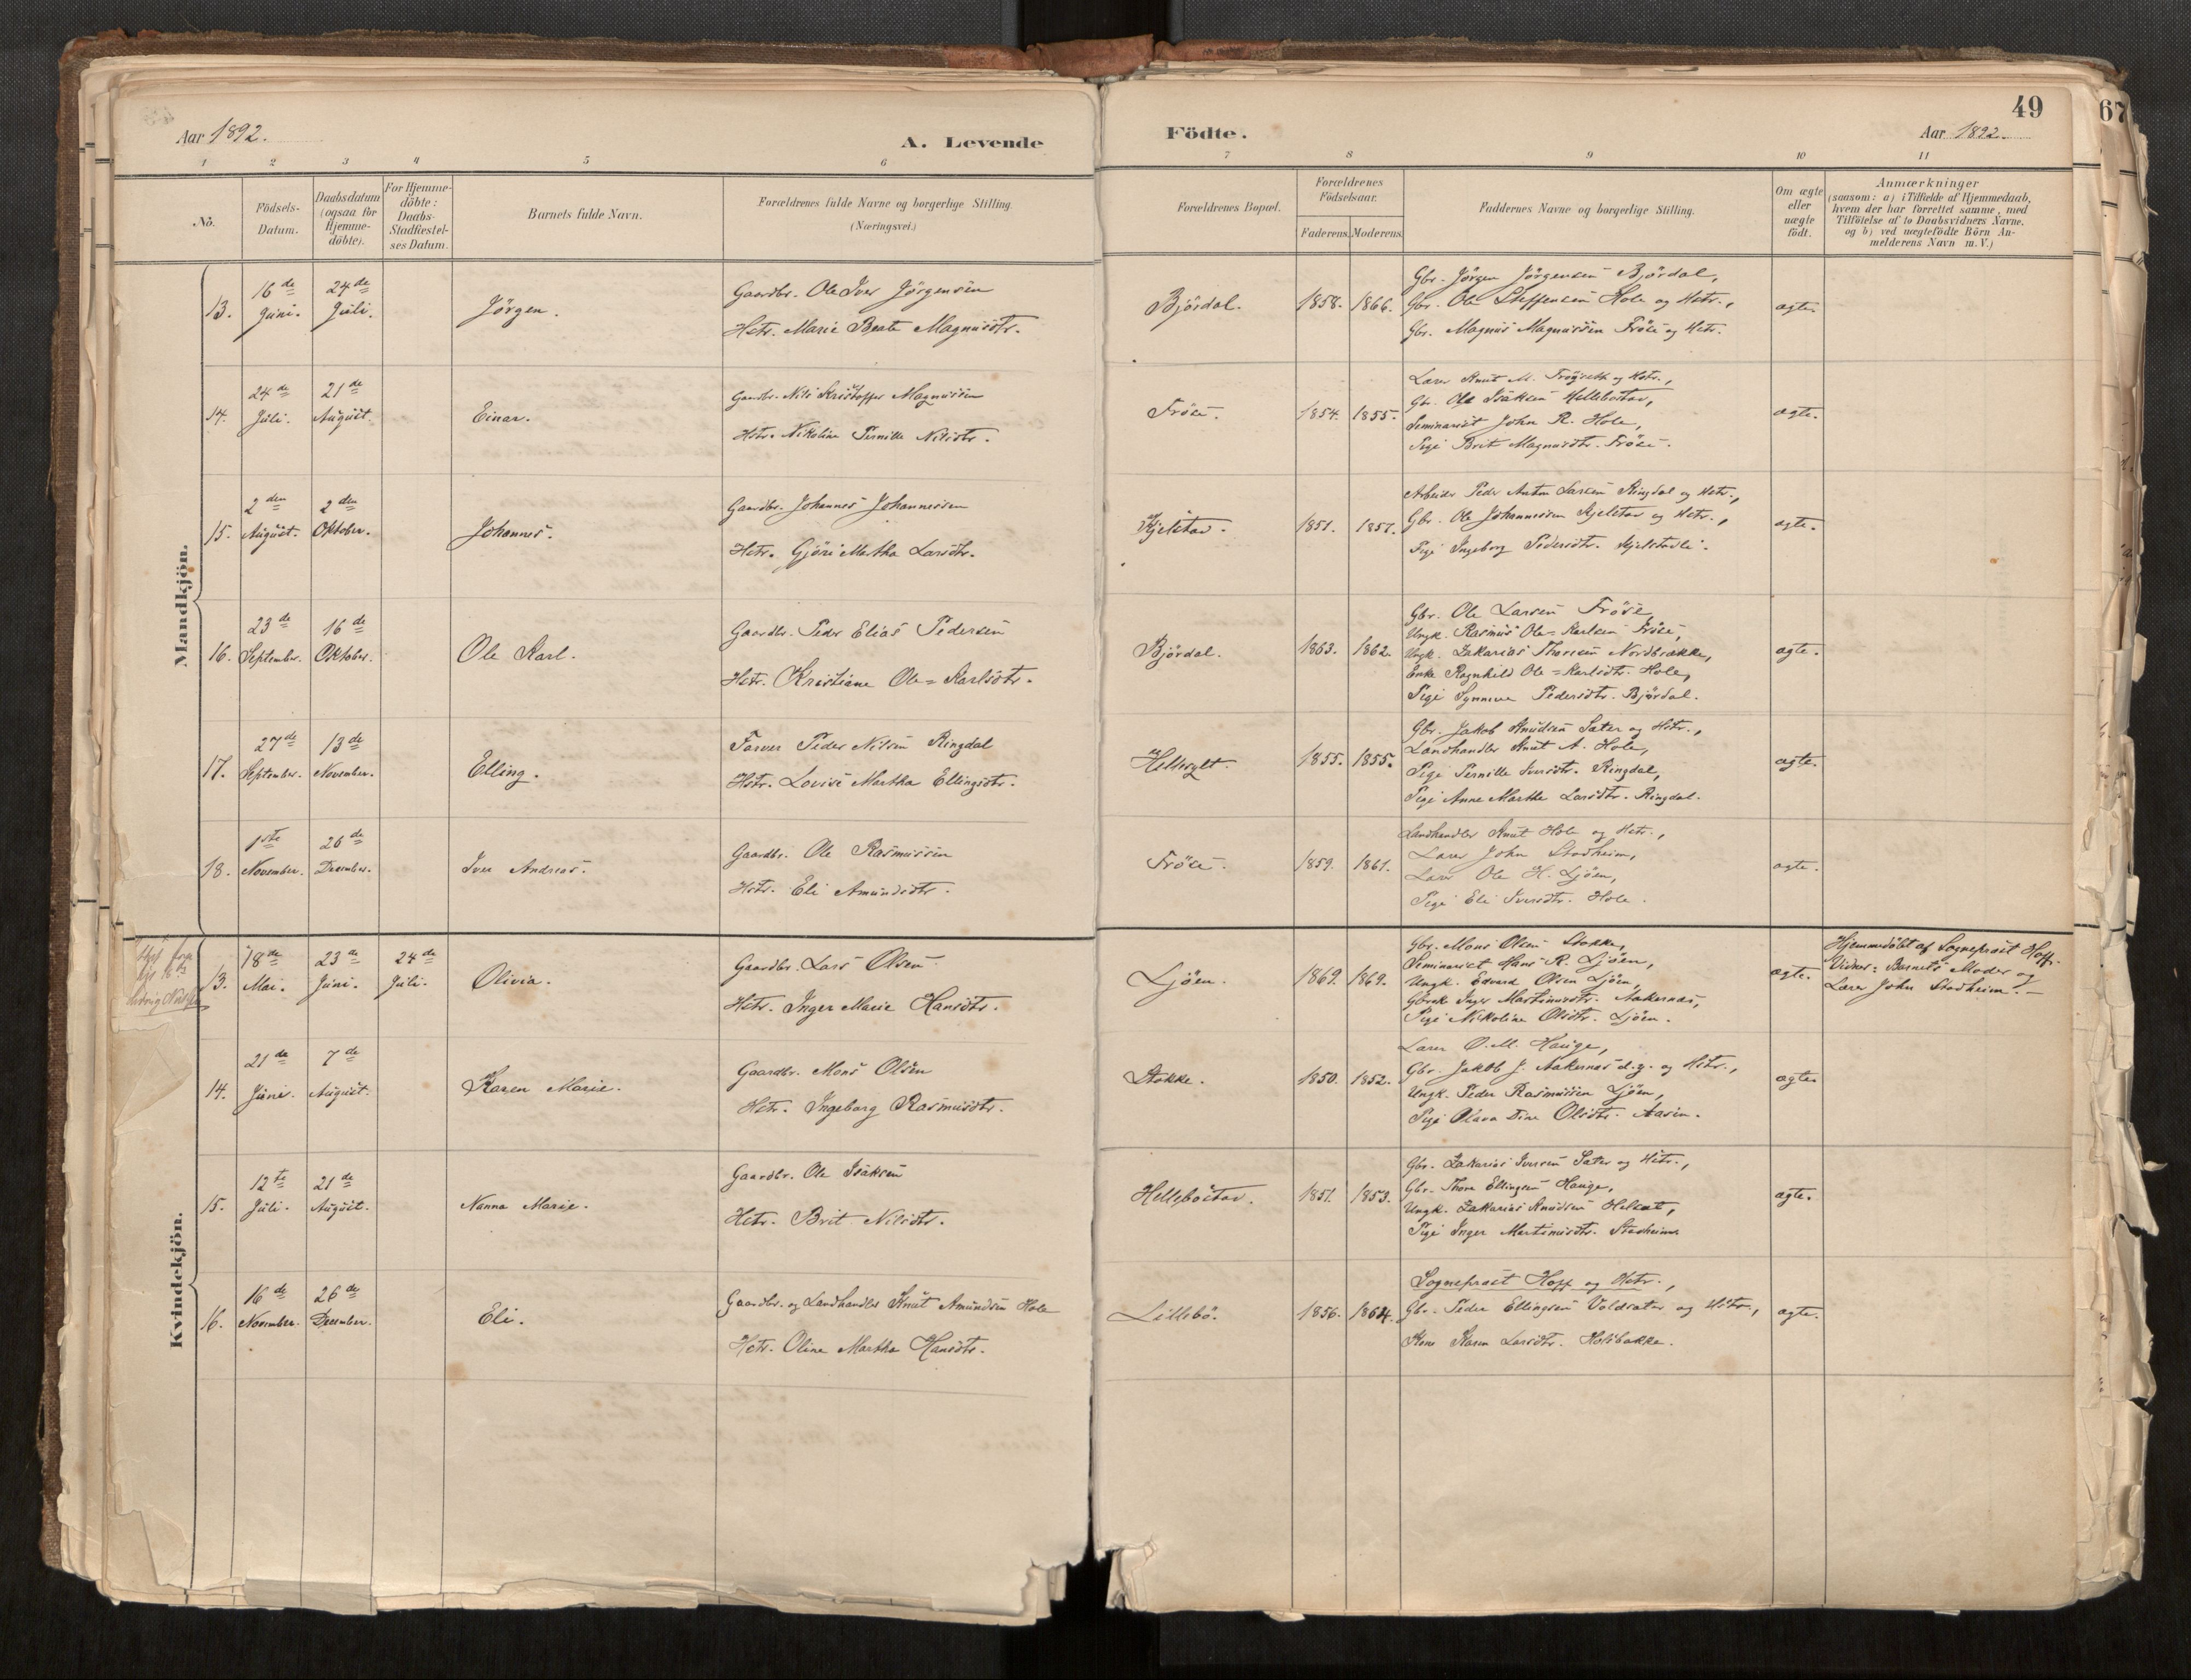 49
67
Aar 1892.
A. Levende
Födte.
Aar 1892.
1 2 3 4 5 6 7 8 9 10 11
No.
Födsels-Datum.
Daabsdatum (ogsaa for Hjemme-döbte).
For Hjemme-döbte: Daabs-Stadfæstel-ses Datum.
Barnets fulde Navn.
Forældrenes fulde Navne og borgerlige Stilling. (Næringsvei.)
Forældrenes Bopæl.
Forældrenes Födselsaar.
Faderens. Moderens.
Faddernes Navne og borgerlige Stilling.
Om ægte eller uægte födt.
Anmærkninger
(saasom: a) i Tilfælde af Hjemmedaab, hvem der har forrettet samme, med Tilföielse af to Daabsvidners Navne. og b) ved uægtefödte Börn An-melderens Navn m. V.)
Mandkjön.
13. 16de Juni. 24de Juli. Jörgen.
Gaardbr. Ole Iver Jörgensen
Hstr. Marie Beate Magnusdtr.
Björdal. 1858. 1866.
Gbr. Jörgen Jörgensen Björdal,
Gbr. Ole Steffensen Hole og Hstr.,
Gbr. Magnus Magnussen Fröse og Hstr.
ægte.
14. 24de Juli. 21de August. Einar.
Gaardbr. Nils Kristoffer Magnussen
Hstr. Nikoline Pernille Nilsdtr.
Fröse. 1854. 1855.
Lærer Knut M. og Hstr.,
Gbr. Ole Isaksen Hellebostav,
Seminarist John R. Hole,
Pige Brit Magnusdtr. Fröse.
ægte.
15. 2den August. 2den Oktober. Johannes.
Gaardbr. Johannes Johannessen
Hstr. Gjöri Martha Larsdtr.
Kjelstav. 1851. 1857.
Arbeider Peder Anton Larsen Ringdal og Hstr.,
Gbr. Ole Johannessen Kjelstav og Hstr.,
Pige Ingeborg Pedersdtr. Kjelstadli.
ægte.
16. 23de September. 16de Oktober. Ole Karl.
Gaardbr. Peder Elias Pedersen
Hstr. Kristiane Ole=Karlsdtr.
Björdal. 1863. 1862.
Gbr. Ole Larsen Fröse,
Ungk. Rasmus Ole=Karlsen Fröse,
Ungk. Zakarias Thoresen Nordbrække,
Enke Ragnhild Ole=Karlsdtr. Hole,
Pige Synneve Pedersdtr. Björdal.
ægte.
17. 27de September. 13de November. Elling.
Farver Peder Nilsen Ringdal
Hstr. Lovise Martha Ellingsdtr.
Hellesylt. 1855. 1855.
Gbr. Jakob Knudsen Sæter og Hstr.,
Landhandler Knut A. Hole,
Pige Pernille Iversdtr. Ringdal,
Pige Anne Marthe Larsdtr. Ringdal.
ægte.
18. 1ste November. 26de December. Iver Andreas.
Gaardbr. Ole Rasmussen
Hstr. Eli Amundsdtr.
Fröse. 1859. 1861.
Landhandler Knut Hole og Hstr.,
Lærer John Stadheim,
Lærer Ole H. Ljöen,
Pige Eli Iversdtr. Hole.
ægte.
Kvindekjön.
13. 18de Mai. 23de Juni. 24de Juli. Olivia.
Gaardbr. Lars Olsen
Hstr. Inger Marie Hansdtr.
Ljöen. 1869. 1869.
Gbr. Mons Olsen Stokke,
Seminarist Hans R. Ljöen,
Ungk. Edvard Olsen Ljöen,
Gbrek. Inger Martinusdtr. Aakernæs,
Pige Nikoline Olsdtr. Ljöen.
ægte.
Hjemmedöbt af Sogneprest Hoff.
Vidner: Barnets Moder og
Lærer John Stadheim. —
14. 21de Juni. 7de August. Karen Marie.
Gaardbr. Mons Olsen
Hstr. Ingeborg Rasmusdtr.
Stokke. 1850. 1852.
Lærer O. M. Hauge,
Gbr. Jakob J. Aakernæs d.y. og Hstr.,
Ungk. Peder Rasmussen Ljöen,
Pige Olava Dina Olsdtr. Aasen.
ægte
15. 12te Juli. 21de August. Nanna Marie.
Gaardbr. Ole Isaksen
Hstr. Brit Nilsdtr.
Hellebostav. 1851. 1853.
Gbr. Zakarias Iversen Sæter og Hstr.,
Gbr. Thore Ellingsen Hauge,
Ungk. Zakarias Knudsen Helset,
Pige Inger Martinusdtr. Stadheim
ægte.
16. 16de November. 26de December. Eli.
Gaardbr. og Landhandler Knut Amundsen Hole
Hstr. Oline Martha Hansdtr.
Lillebö. 1856. 1864.
Sogneprest Hoff og Hstr.,
Gbr. Peder Ellingsen Voldsæter og Hstr.,
Kone Karen Larsdtr. Holsbakke.
ægte.